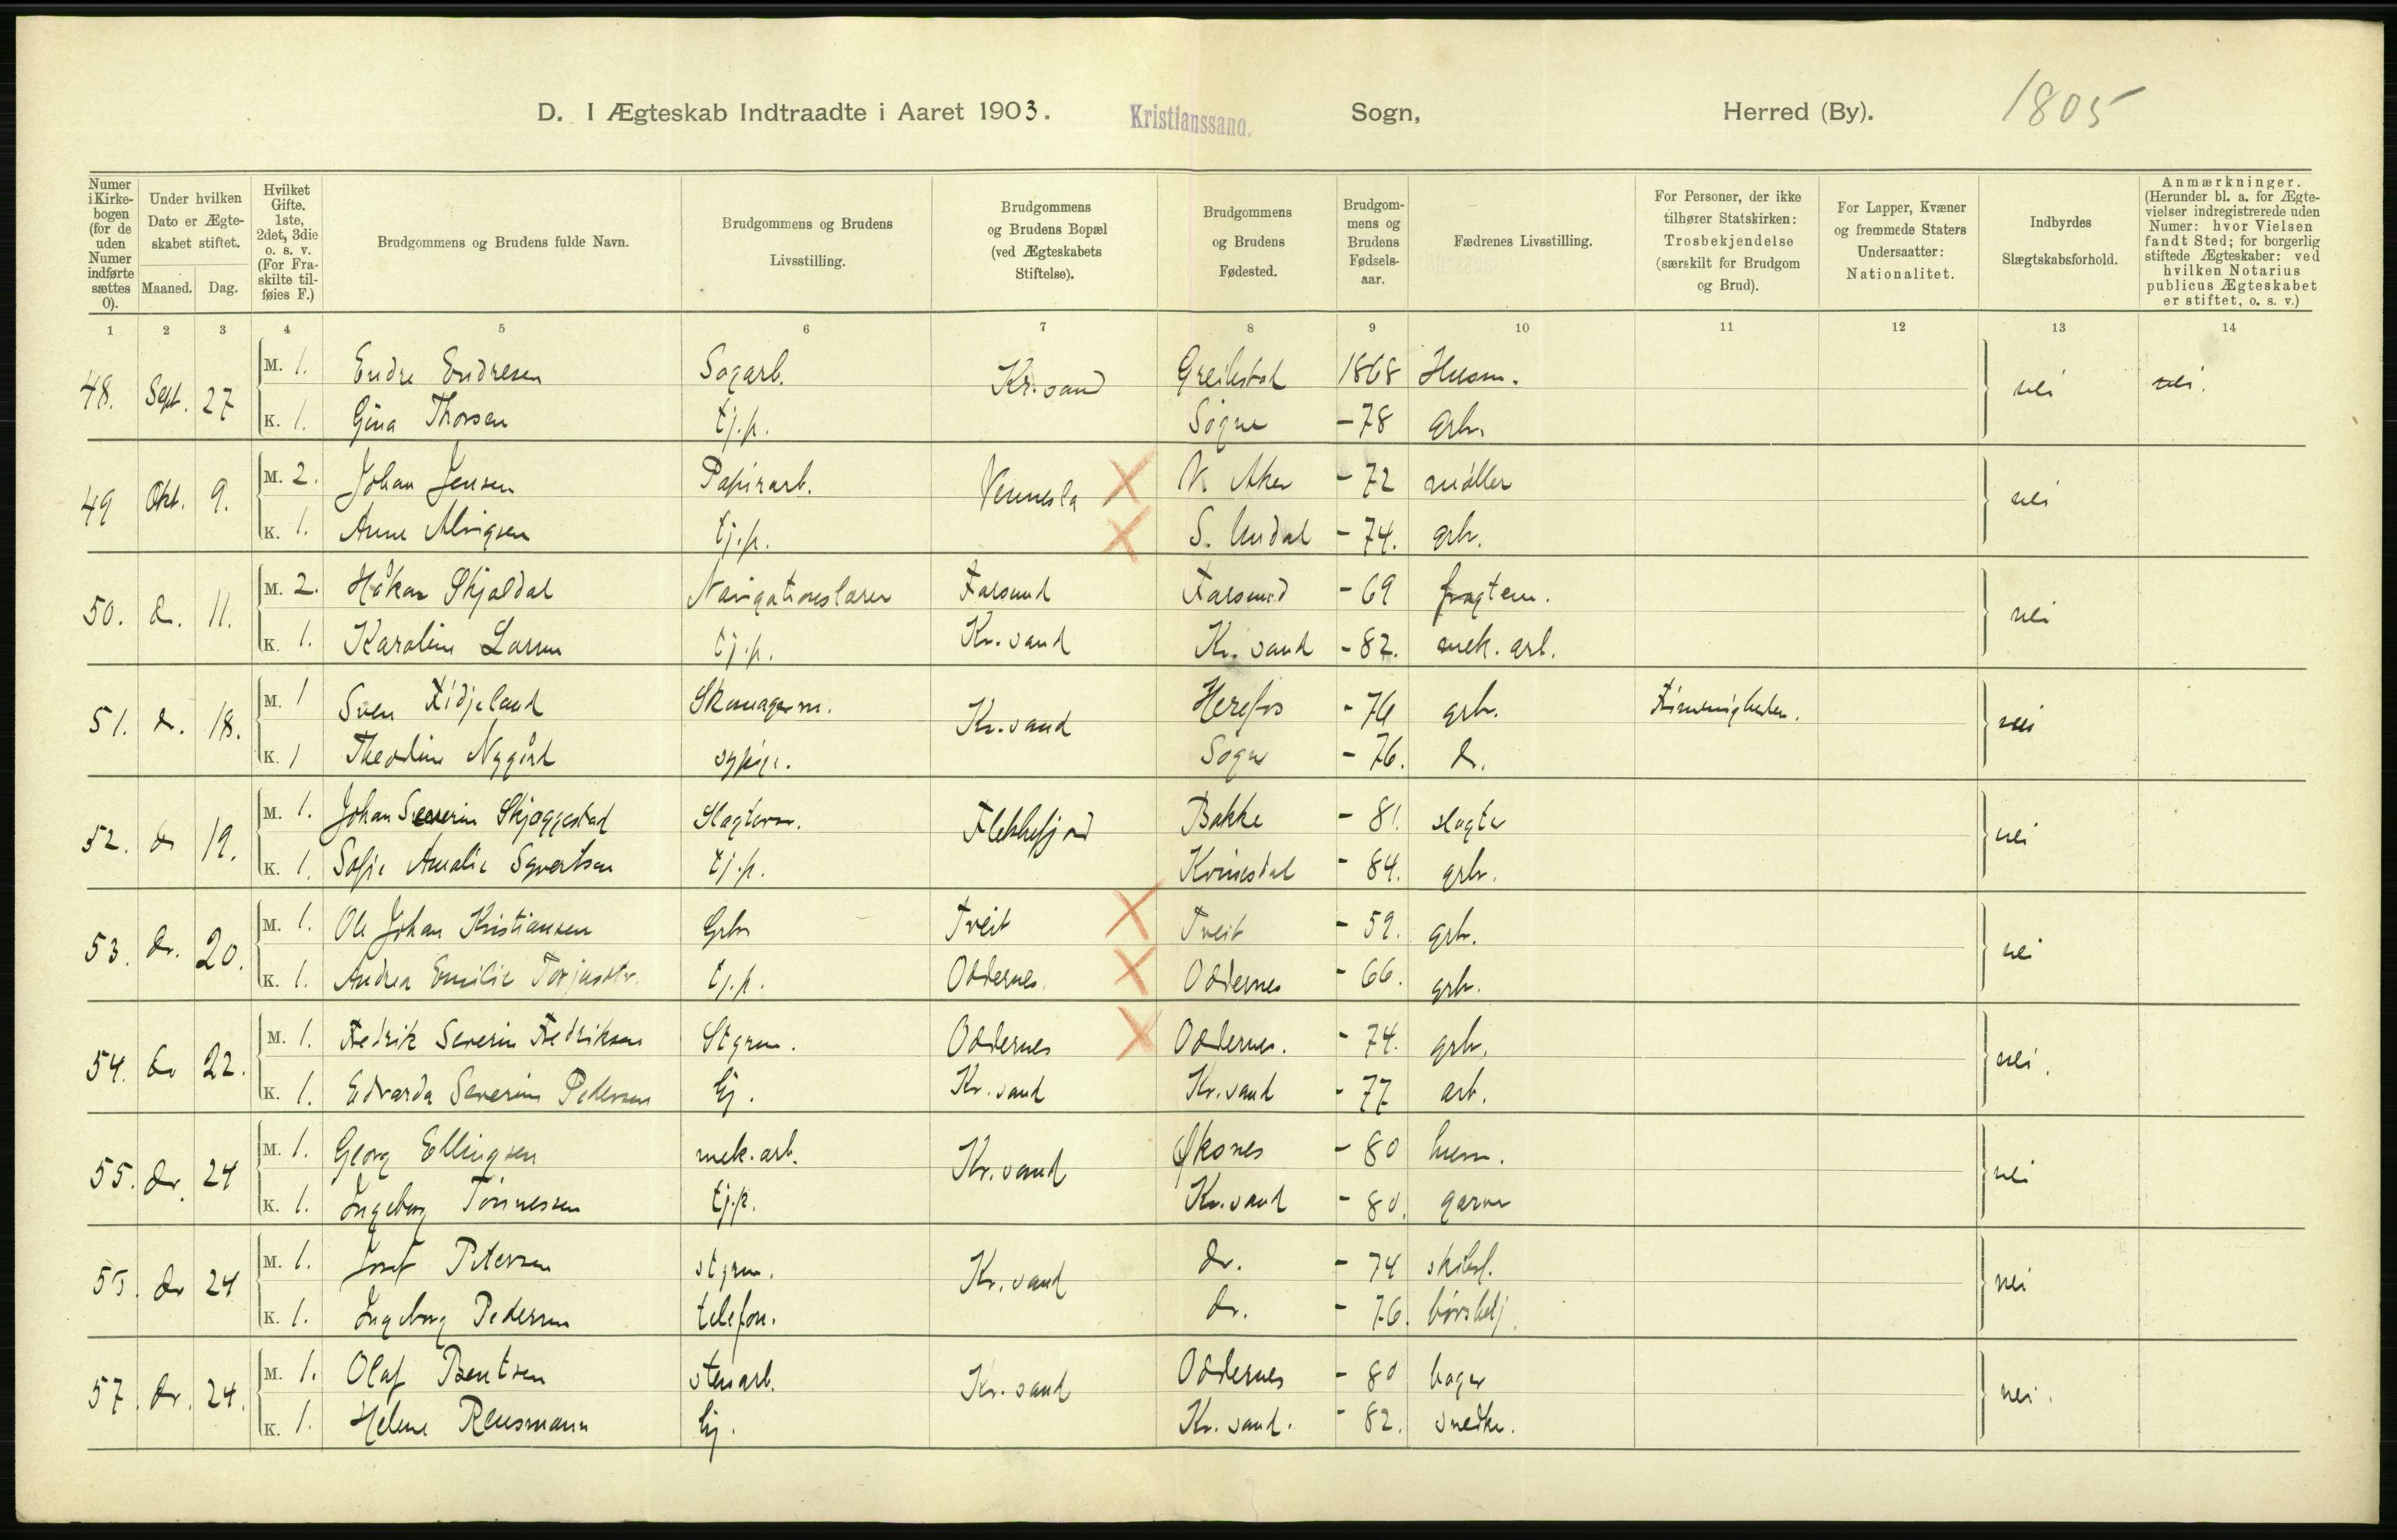 D. I Ægteskab Indtraadte i Aaret 1903. Kristianssand. Sogn, Herred (By). 1805
Numer i Kirkebogen (for de uden Numer indførte sættes 0).
Under hvilken Dato er Ægteskabet stiftet.
Maaned. Dag.
Hvilket Gifte. 1ste, 2det, 3die o. s. v. (For Fraskilte tilføies F.)
Brudgommens og Brudens fulde Navn.
Brudgommens og Brudens Livsstilling.
Brudgommens og Brudens Bopæl (ved Ægteskabets Stiftelse).
Brudgommens og Brudens Fødested.
Brudgommens og Brudens Fødselsaar.
Fædrenes Livsstilling.
For Personer, der ikke tilhører Statskirken: Trosbekjendelse (særskilt for Brudgom og Brud).
For Lapper, Kvæner og fremmede Staters Undersaatter: Nationalitet.
Indbyrdes Slægtskabsforhold.
Anmærkninger. (Herunder bl. a. for Ægtevielser indregistrerede uden Numer: hvor Vielsen fandt Sted; for borgerlig stiftede Ægteskaber: ved hvilken Notarius publicus Ægteskabet er stiftet, o. s. v.)
1 2 3 4 5 6 7 8 9 10 11 12 13 14
48. Sept. 27 M. 1. Endre Endresen Sagarb. Kr.sand 1868 Husm. nei nei.
K. 1. Gina Thorsen tj.p. Søgne - 78 grbr.
49 Okt. 9. M. 2. Johan Jensen Papirarb. Vennesla V. Aker - 72 møller nei
K. 1. Anne tj.p. S. Undal - 74. grbr.
50. do. 11. M. 2. Håkon Skjoldal Navigationslærer Farsund Farsund - 69 fragtem. nei
K. 1. Karoline Larsen tj.p. Kr.sand Kr.sand - 82. mek. arb.
51. do. 18. M. 1 Sven Fidjeland Skomagerm. Kr.sand Herefos - 76 grbr. nei
K. 1 Theodine Nygård sypige. Søgne - 76. do.
52. do 19. M. 1. Johan Severin Skjeggestad Slagterm. Flekkefjord Bakke - 81. slagter nei
K. 1. Sofie Amalie Syvertsen tj.p. Kvinesdal - 84. grbr.
53. do. 20. M. 1. Ole Johan Kristiansen Grbr Tveit Tveit - 59. grbr. nei
K. 1. Andrea Emilie tj.p. Oddernes. Oddernes - 66. grbr.
54. do 22. M. 1. Fedrik Severin Fedriksen Styrm. Oddernes Oddernes. - 74. grbr. nei.
K. 1. Edvarda Severine Pedersen tj. Kr.sand Kr.sand - 77 arb.
55. do. 24 M. 1. Georg Ellingsen mek. arb. Kr.sand Øksnes - 80 husm. nei
K. 1. Ingeborg Tønnessen tj.p. Kr.sand - 80. garver
55. do 24 M. 1. Josef Petersen styrm. Kr.sand do. - 74 skibsf. nei
K. 1. Ingeborg Pedersen telefon. do. - 76.
57. do. 24. M. 1. Olaf Bentsen stenarb. Kr.sand Oddernes - 80 bager nei.
K. 1. Helene Reusmann tj. Kr.sand. - 82. snedker.